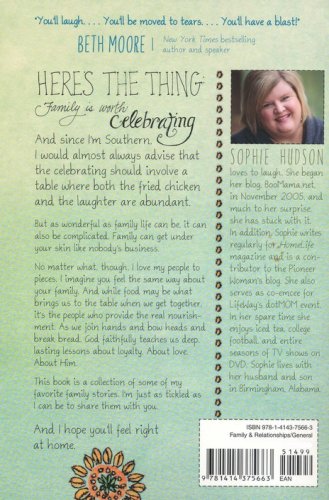 "You'll laugh. . . . You'll be moved to tears. . . . You'll have a blast!"
BETH MOORE | New York Times bestselling
author and speaker
HERE'S THE THING:
Family is worth
celebrating
And since I'm Southern,
I would almost always advise that
the celebrating should involve a
table where both the fried chicken
and the laughter are abundant.
But as wonderful as family life can be, it can
also be complicated. Family can get under
your skin like nobody's business.
No matter what, though, I love my people to
pieces. I imagine you feel the same way about
your family. And while food may be what
brings us to the table when we get together,
it's the people who provide the real nourish-
ment. As we join hands and bow heads and
break bread, God faithfully teaches us deep,
lasting lessons about loyalty. About love.
About Him.
This book is a collection of some of my
favorite family stories. I'm just as tickled as
I can be to share them with you.
And I hope you'll feel right
at home.
SOPHIE HUDSON
loves to laugh. She began
her blog, BooMama.net,
in November 2005, and
much to her surprise
she has stuck with it.
In addition, Sophie writes
regularly for HomeLife
magazine and is a con-
tributor to the Pioneer
Woman's blog. She also
serves as co-emcee for
LifeWay's dotMOM event.
In her spare time she
enjoys iced tea, college
football, and entire
seasons of TV shows on
DVD. Sophie lives with
her husband and son
in Birmingham, Alabama.
ISBN 978-1-4143-7566-3
Family & Relationships/General
51499
9 781414 375663
EAN